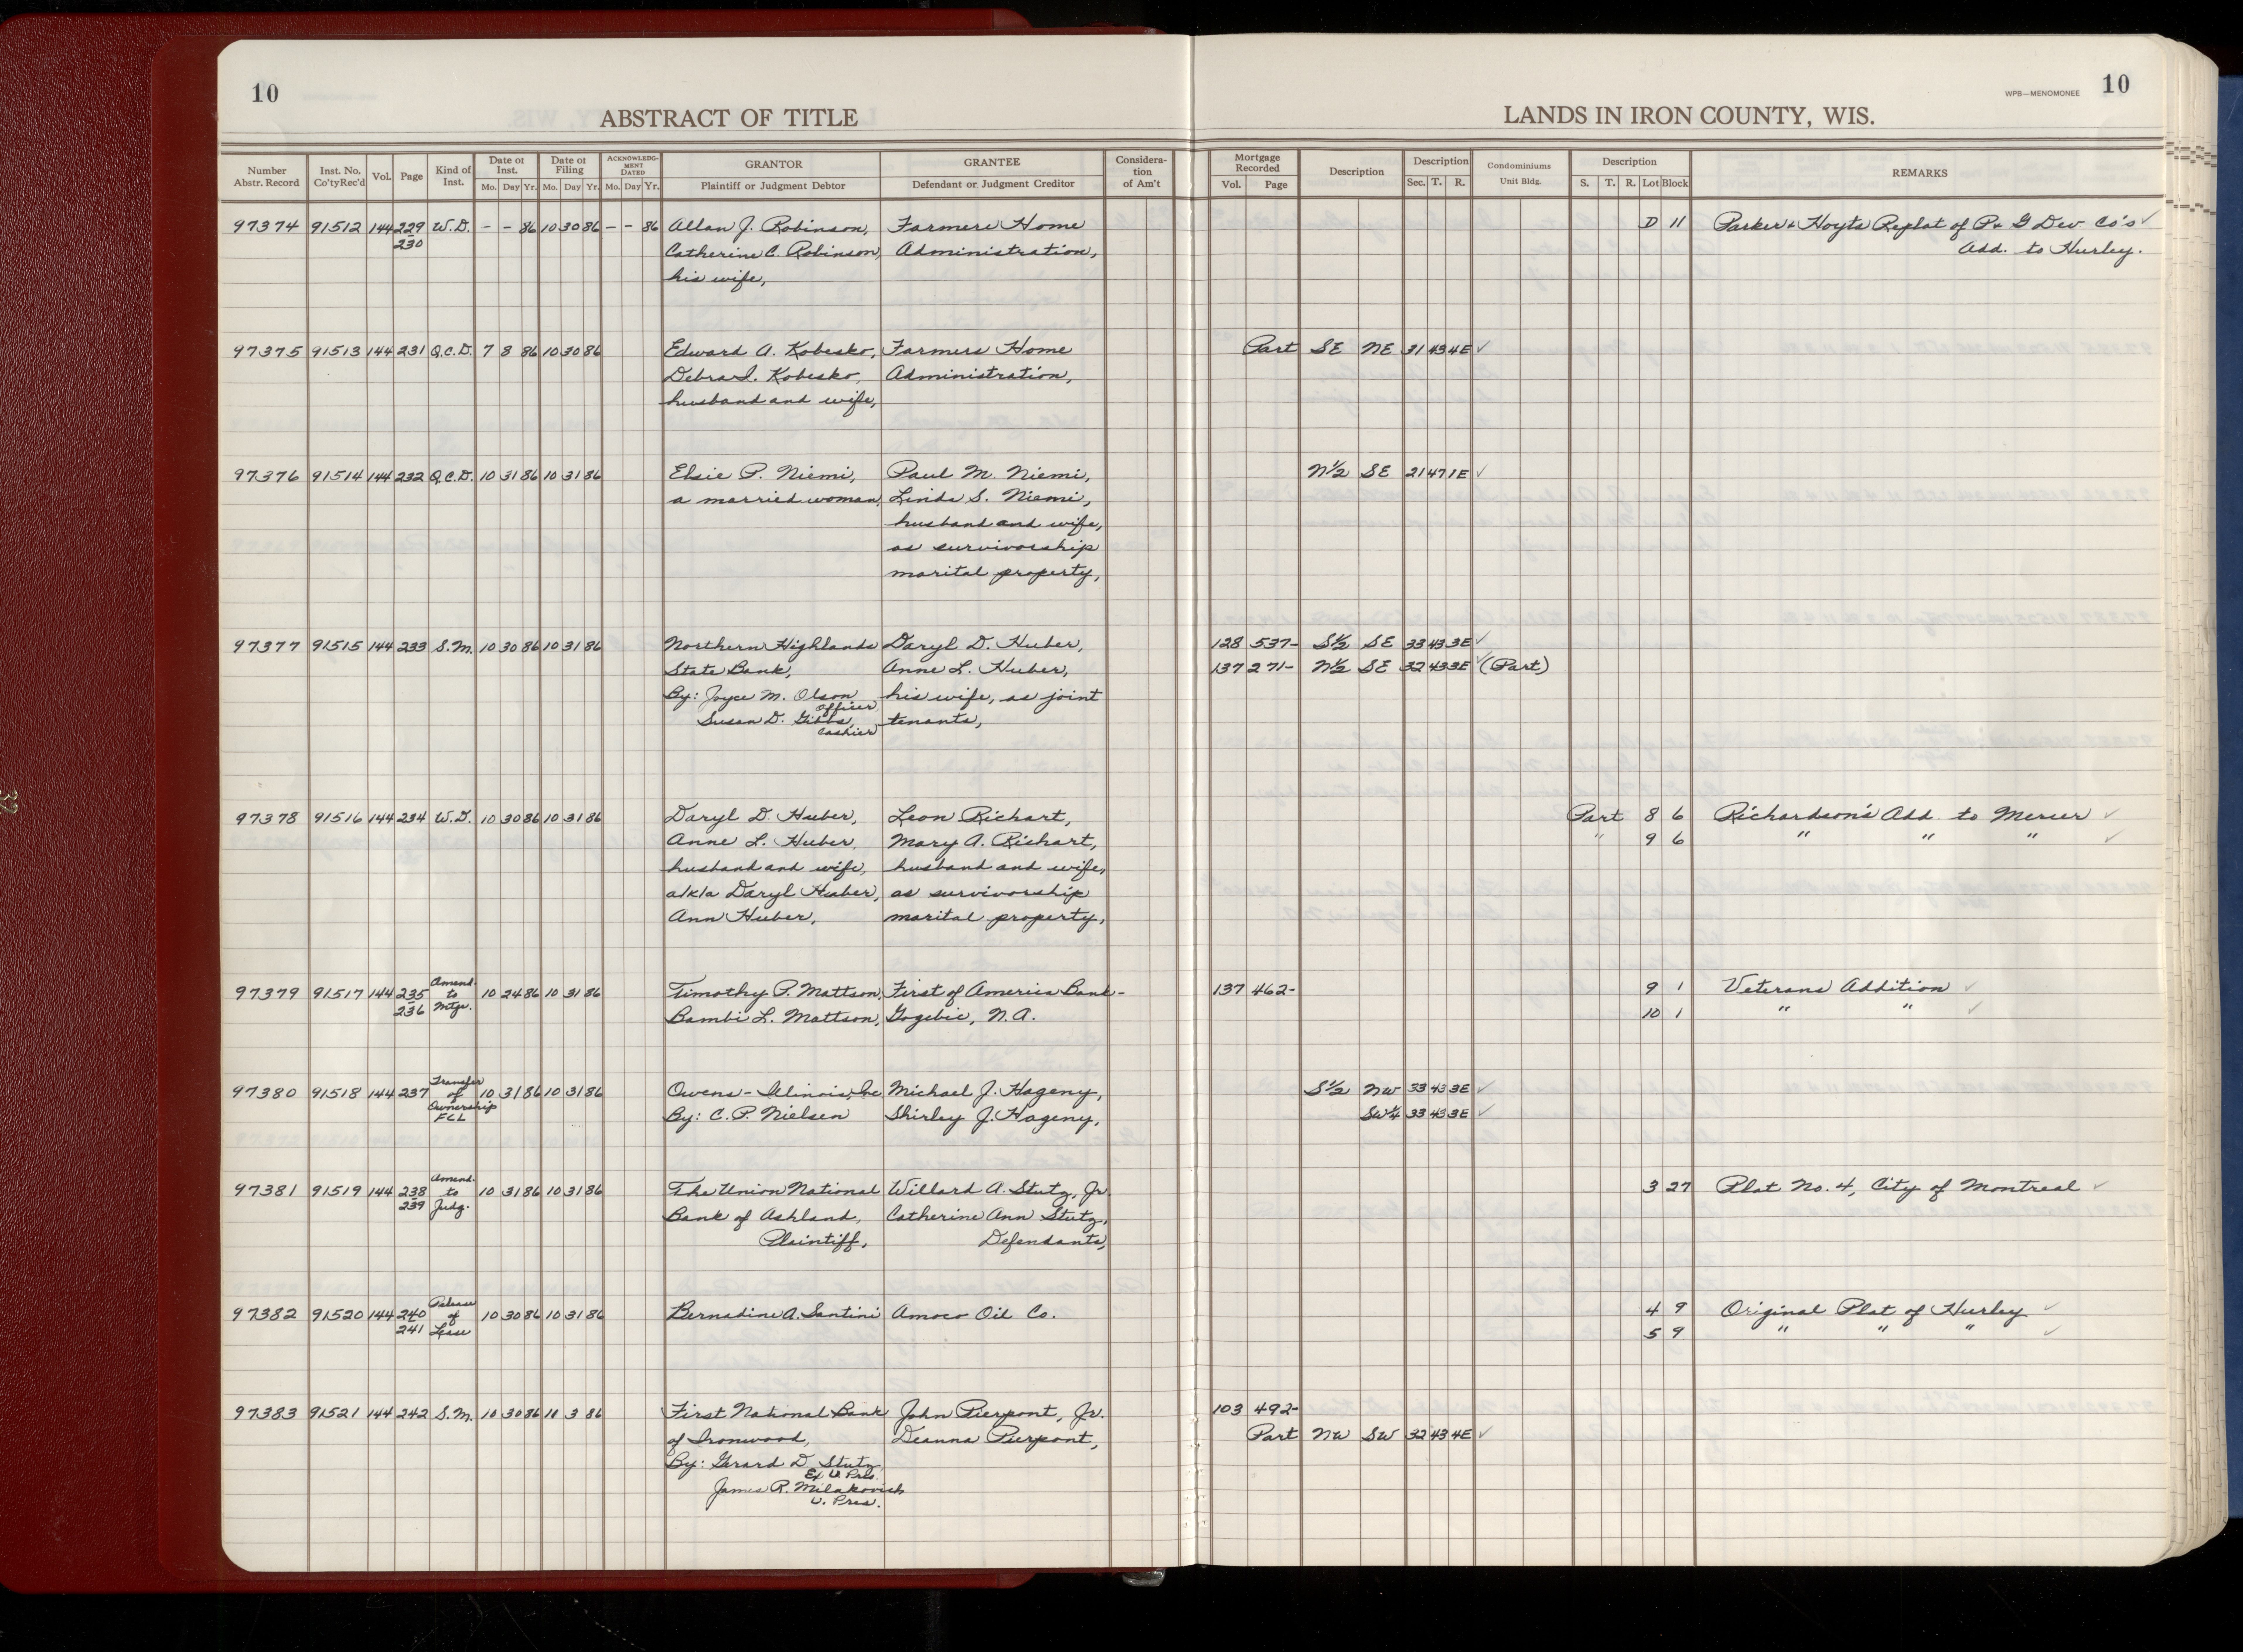 10
ABSTRACT OF TITLE
Number Abstr. Record | Inst. No. Co'ty Rec'd | Vol. | Page | Kind of Inst. | Date of Inst. Mo. Day Yr. | Date of Filing Mo. Day Yr. | ACKNOWLEDGMENT DATED Mo. Day Yr. | GRANTOR Plaintiff or Judgment Debtor | GRANTEE Defendant or Judgment Creditor | Consideration of Am't
97374 91512 144 229 W.D. - - 86 10 30 86 - - 86 Allan J. Robinson, Farmers Home
230 Catherine C. Robinson, Administration,
his wife,
97375 91513 144 231 Q.C.D. 7 8 86 10 30 86 Edward A. Kobesko, Farmers Home
Debra I. Kobesko, Administration,
husband and wife,
97376 91514 144 232 Q.C.D. 10 31 86 10 31 86 Elsie P. Niemi, Paul M. Niemi,
a married woman, Linda S. Niemi,
husband and wife,
as survivorship
marital property,
97377 91515 144 233 S.M. 10 30 86 10 31 86 Northern Highlands Daryl D. Huber,
State Bank, Anne L. Huber,
By: Joyce M. Olson his wife, as joint
Officer,
Susan D. Gibbs, tenants,
Cashier
97378 91516 144 234 W.D. 10 30 86 10 31 86 Daryl D. Huber, Leon Richart,
Anne L. Huber, Mary A. Richart,
husband and wife, husband and wife,
a/k/a Daryl Huber, as survivorship
Ann Huber, marital property,
97379 91517 144 235 236 Amend. to Mtge. 10 24 86 10 31 86 Timothy P. Mattson, First of America Bank-
Bambi L. Mattson, Gogebic, N.A.
97380 91518 144 237 Transfer of Ownership FCL 10 31 86 10 31 86 Owens-Illinois, Inc Michael J. Hageny,
By: C.P. Nielsen Shirley J. Hageny,
97381 91519 144 238 239 Amend. to Judg. 10 31 86 10 31 86 The Union National Willard A. Stutz, Jr.
Bank of Ashland, Catherine Ann Stutz,
Plaintiff, Defendants,
97382 91520 144 240 241 Release of Lease 10 30 86 10 31 86 Bernadine A. Santini Amoco Oil Co.
97383 91521 144 242 S.M. 10 30 86 10 3 86 First National Bank John Pierpont, Jr.
of Ironwood, Deanna Pierpont,
By: Gerard D. Stutz
Ex V. Pres.
James R. Milakovich
V. Pres.
10
WPB—MENOMONEE
LANDS IN IRON COUNTY, WIS.
Mortgage Recorded Vol. Page | Description | Description Sec. T. R. | Condominiums Unit Bldg. | Description S. T. R. Lot Block | REMARKS
D 11 Parker & Hoyts Replat of P & G Dev Co's ✓
Add. to Hurley.
Part SE NE 31 43 4E ✓
N½ SE 21 47 1E ✓
128 537- S½ SE 33 43 3E ✓
137 271- N½ SE 32 43 3E ✓ (Part)
Part 8 6 Richardson's Add. to Mercer ✓
" 9 6 " " " ✓
137 462- 9 1 Veterans Addition ✓
10 1 " " ✓
S½ NW 33 43 3E ✓
SW¼ 33 43 3E ✓
3 27 Plat No. 4, City of Montreal ✓
4 9 Original Plat of Hurley ✓
5 9 " " " ✓
103 492-
Part NW SW 32 43 4E ✓